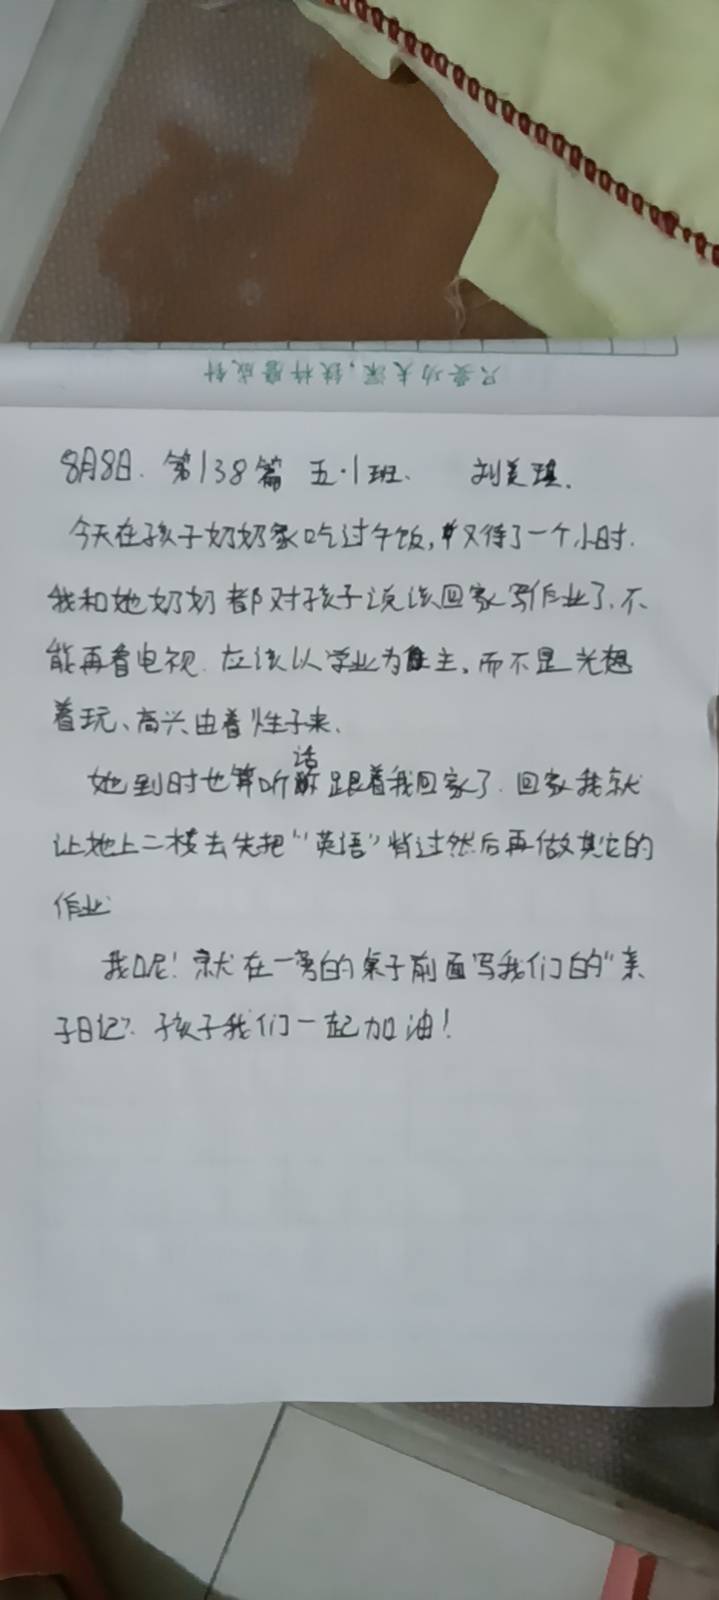 只要功夫深，铁杵磨成针
8月8日. 第138篇 五·1班. 刘美琪.
今天在孩子奶奶家吃过午饭,又待了一个小时.
我和她奶奶都对孩子说该回家写作业了.不
能再看电视.应该以学业为主,而不是光想
着玩、高兴由着性子来.
她到时也算听话跟着我回家了.回家我就
让她上二楼去先把“英语”背过然后再做其它的
作业.
我呢!就在一旁的桌子前面写我们的“亲
子日记”.孩子我们一起加油!